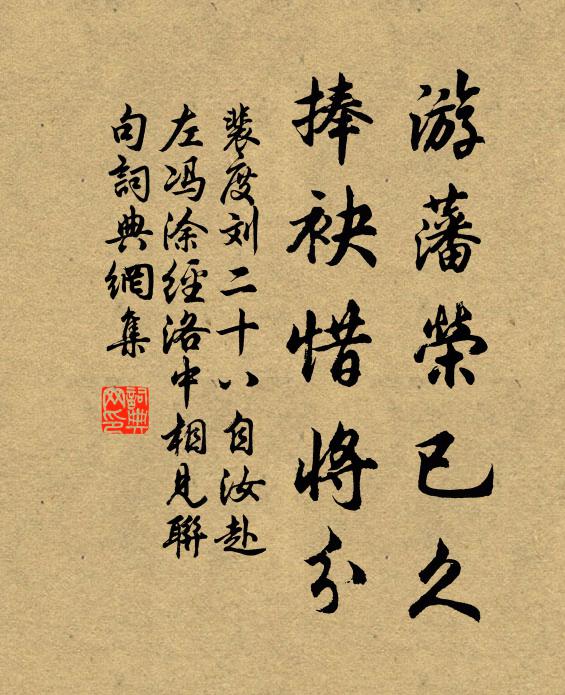 游藩榮已久
捧袂惜將分
裴度刘二十八自汝赴
左冯涂經洛中相見聯
句詞典網集
詞典
网印